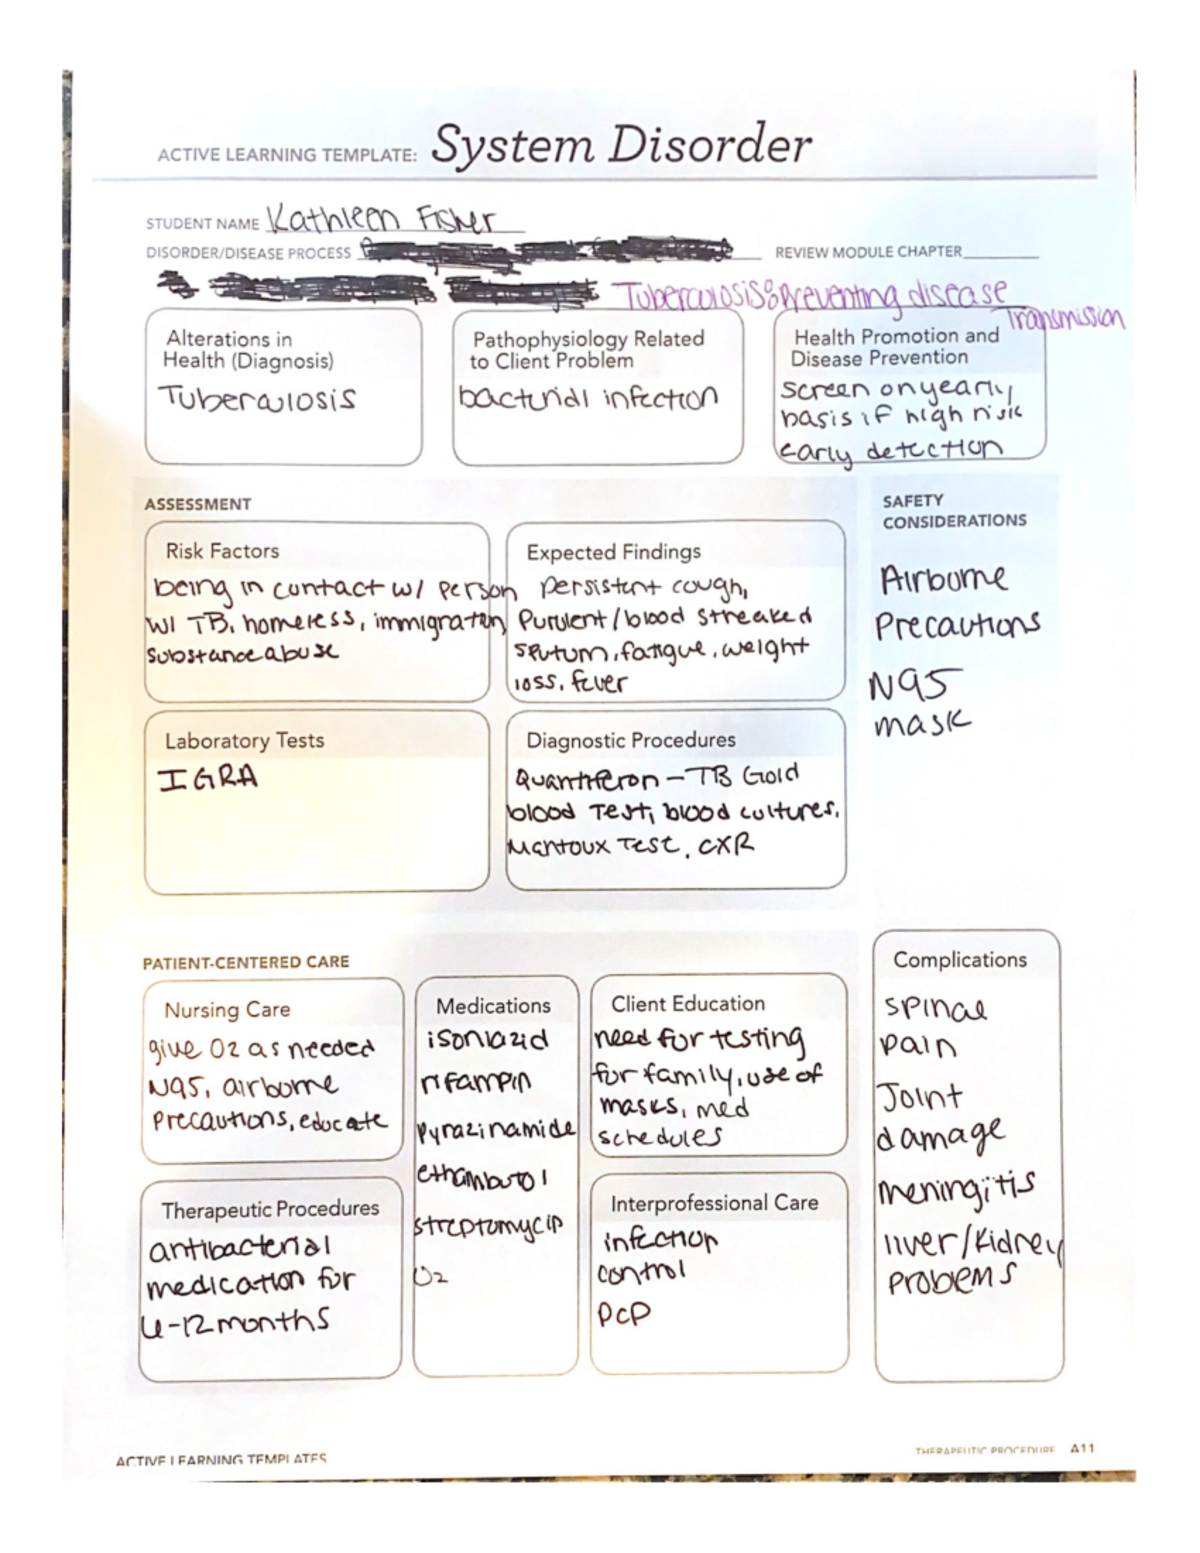 ACTIVE LEARNING TEMPLATE: System Disorder
STUDENT NAME Kathleen Fisher
DISORDER/DISEASE PROCESS
REVIEW MODULE CHAPTER
Tuberculosis: Preventing disease
Transmission
Alterations in
Health (Diagnosis)
Tuberculosis
Pathophysiology Related
to Client Problem
bacterial infection
Health Promotion and
Disease Prevention
screen on yearly
basis if high risk
early detection
ASSESSMENT
Risk Factors
being in contact w/ person
w/ TB, homeless, immigration,
substance abuse
Expected Findings
persistent cough,
Purulent/blood streaked
sputum, fatigue, weight
loss, fever
SAFETY
CONSIDERATIONS
Airborne
Precautions
N95
mask
Laboratory Tests
IGRA
Diagnostic Procedures
Quantiferon - TB Gold
blood Test, blood cultures,
Mantoux Test, CXR
PATIENT-CENTERED CARE
Nursing Care
give O2 as needed
N95, airborne
precautions, educate
Medications
isoniazid
rifampin
pyrazinamide
ethambutol
streptomycin
O2
Client Education
need for testing
for family, use of
masks, med
schedules
Therapeutic Procedures
antibacterial
medication for
6-12 months
Interprofessional Care
infection
control
PCP
Complications
spinal
pain
Joint
damage
meningitis
liver/kidney
problems
ACTIVE LEARNING TEMPLATES
THERAPEUTIC PROCEDURE A11